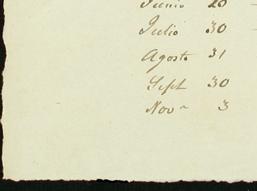 Junio 20
Julio 30
Agosto 31
Sept 30
Nov~ 3